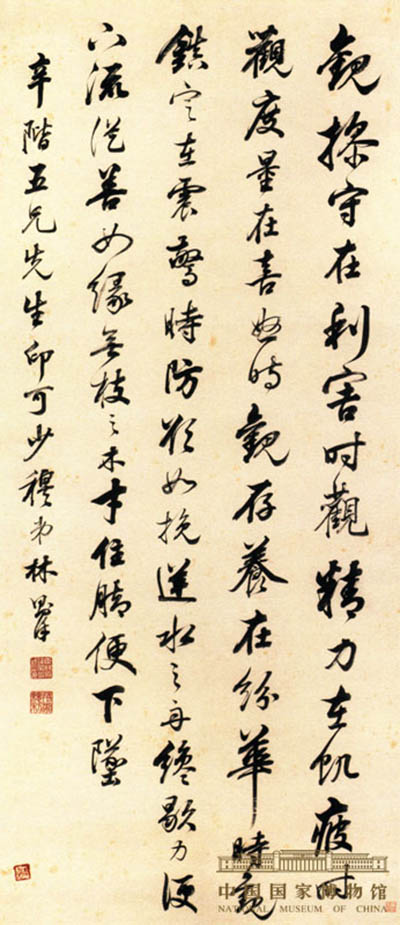 觀操守在利害时觀精力在飢疲时
觀度量在喜怒时觀存養在紛華時觀
鎮定在震驚時防欲如挽逆水之舟纔歇力便
下流從善如缘無枝之木才住腳便下墜
辛階五兄先生印可少穆弟林則徐
中国国家博物馆
NATIONAL MUSEUM OF CHINA